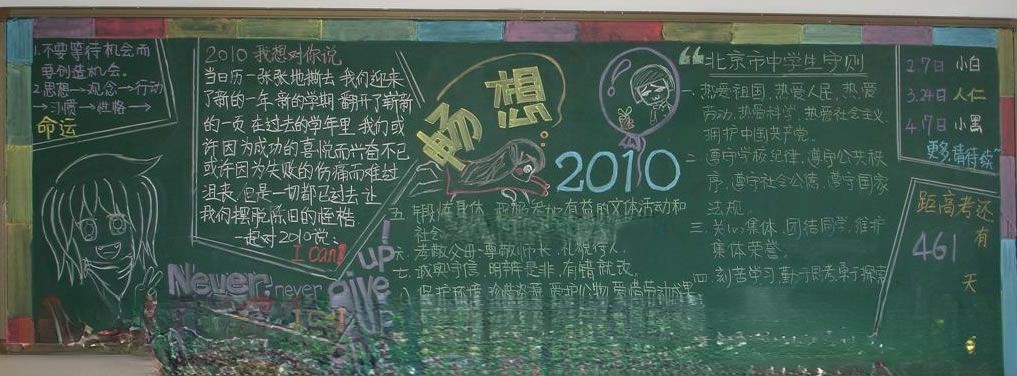 1.不要等待机会而
要创造机会。
2.思想→观念→行动
→习惯→性格→
命运
2010 我想对你说
当日历一张张地撕去 我们迎来
了新的一年 新的学期 翻开了崭新
的一页 在过去的学年里 我们或
许因为成功的喜悦而兴奋不已
或许因为失败的伤痛而难过
沮丧 但是一切都已过去 让
我们摆脱陈旧的桎梏
一起对2010说:
I can!
Never never give up!
畅想
2010
北京市中学生守则
一、热爱祖国,热爱人民,热爱
劳动,热爱科学,热爱社会主义
拥护中国共产党。
二、遵守学校纪律,遵守公共秩
序,遵守社会公德,遵守国家
法规。
三、关心集体,团结同学,维护
集体荣誉。
四、刻苦学习,勤于思考,勇于探索
五、锻炼身体,有益的文体活动和
社会
六、孝敬父母,尊敬师长,礼貌待人。
七、诚实守信,明辨是非,有错就改。
八、保护环境,珍惜资源,爱护公物
2.7日 小白
3.24日 人仁
4.7日 小黑
更多请待续~
距高考还
有
461
天